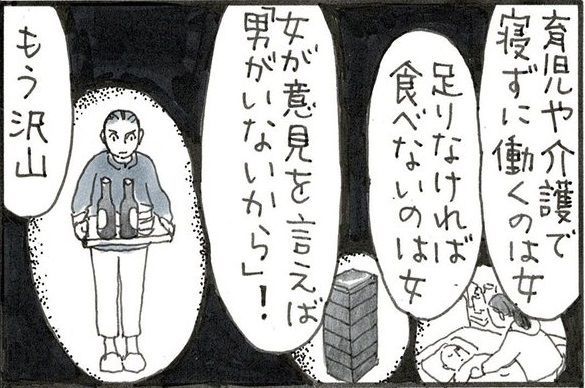 育児や介護で
寝ずに働くのは女
足りなければ
食べないのは女
女が意見を言えば
「男がいないから」!
もう沢山